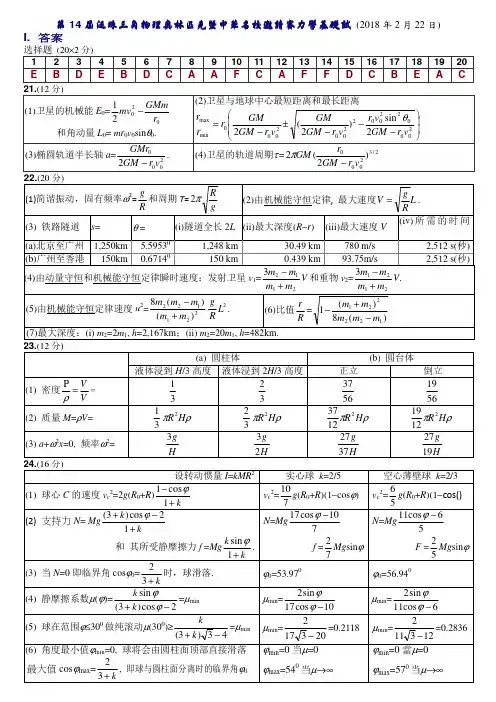 第 14 届泛珠三角物理奥林匹克暨中华名校邀请赛力学基础試 (2018 年 2 月 22 日)
I. 答案
选择题 (20×2 分)
1 2 3 4 5 6 7 8 9 10 11 12 13 14 15 16 17 18 19 20
E B D E B D C A A F C A F F D C B E A C
21.(12 分)
(1)卫星的机械能 E₀=1/2 mv₀² − GMm/r₀
和角动量 L₀= mr₀v₀sinθ₀.
(2)卫星与地球中心最短距离和最长距离
r_max r_min = r₀( GM/(2GM − r₀v₀²) ± √((GM/(2GM − r₀v₀²))² − r₀v₀² sin²θ₀/(2GM − r₀v₀²)) )
(3)椭圆轨道半长轴 a= GMr₀/(2GM − r₀v₀²) .
(4)卫星的轨道周期τ= 2πGM (r₀/(2GM − r₀v₀²))^(3/2)
22.(20 分)
(1)简谐振动，固有频率ω²= g/R 和周期 τ= 2π√(R/g)
(2)由机械能守恒定律, 最大速度V = √(g/R) L .
(3) 铁路隧道 s= θ= (i)隧道全长 2L (ii)最大深度(R−r) (iii)最大速度 V (iv)所需的时间
(a)北京至广州 1,250km 5.5953⁰ 1,248 km 30.49 km 780 m/s 2,512 s(秒)
(b)广州至香港 150km 0.6714⁰ 150 km 0.439 km 93.75m/s 2,512 s(秒)
(4)由动量守恒和机械能守恒定律瞬时速度：发射卫星 v₁= (3m₂ − m₁)/(m₁ + m₂) V 和重物 v₂= (3m₁ − m₂)/(m₁ + m₂) V.
(5)由机械能守恒定律速度 u²= 8m₂(m₂ − m₁)/(m₁ + m₂)² g/R L² .
(6)比值 r/R = √(1 − (m₁ + m₂)²/(8m₂(m₂ − m₁)))
(7)最大深度：(i) m₂=2m₁, h=2,167km；(ii) m₂=20m₁, h=482km.
23.(12 分)
(a) 圆柱体 (b) 圆台体
液体浸到 H/3 高度 液体浸到 2H/3 高度 正立 倒立
(1) 密度 P/ρ = V/V = 1/3 2/3 37/56 19/56
(2) 质量 M=ρV= 1/3 πR²Hρ 2/3 πR²Hρ 37/12 πR²Hρ 19/12 πR²Hρ
(3) a+ω²x=0, 频率ω²= 3g/H 3g/2H 27g/37H 27g/19H
24.(16 分)
设转动惯量 I=kMR² 实心球 k=2/5 空心薄壁球 k=2/3
(1) 球心 C 的速度 v_c²=2g(R₀+R) (1 − cosφ)/(1 + k) v_c²= 10/7 g(R₀+R)(1−cosφ) v_c²= 6/5 g(R₀+R)(1−cos{)
(2) 支持力 N= Mg ((3 + k)cosφ − 2)/(1 + k) N=Mg (17cosφ −10)/7 N=Mg (11cosφ − 6)/5
和 其所受静摩擦力 f =Mg k sinφ/(1 + k) . f = 2/7 Mgsinφ F = 2/5 Mgsinφ
(3) 当 N=0 即临界角 cosφ₀= 2/(3 + k) 时，球滑落. φ₀=53.97⁰ φ₀=56.94⁰
(4) 静摩擦系数μ(φ)= k sinφ/((3 + k)cosφ − 2) =μmin μmin= 2sinφ/(17cosφ −10) μmin= 2sinφ/(11cosφ − 6)
(5) 球在范围φ≤30⁰ 做纯滚动μ(30⁰)≥ k/((3 + k)√3 − 4) =μmin μmin= 2/(17√3 − 20) =0.2118 μmin= 2/(11√3 −12) =0.2836
(6) 角度最小值φmin=0, 球将会由圆柱面顶部直接滑落 φmin=0 当μ=0 φmin=0 當μ=0
最大值 cosφmax= 2/(3 + k) , 即球与圆柱面分离时的临界角φ₀ φmax=54⁰ 当μ→∞ φmax=57⁰ 当μ→∞